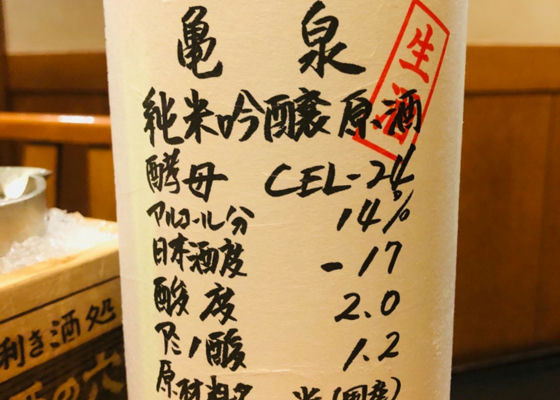 亀泉
生酒
純米吟醸原酒
酵母 CEL-24
アルコール分 14%
日本酒度 -17
酸度 2.0
アミノ酸 1.2
原材料名 米(国産)
利き酒処